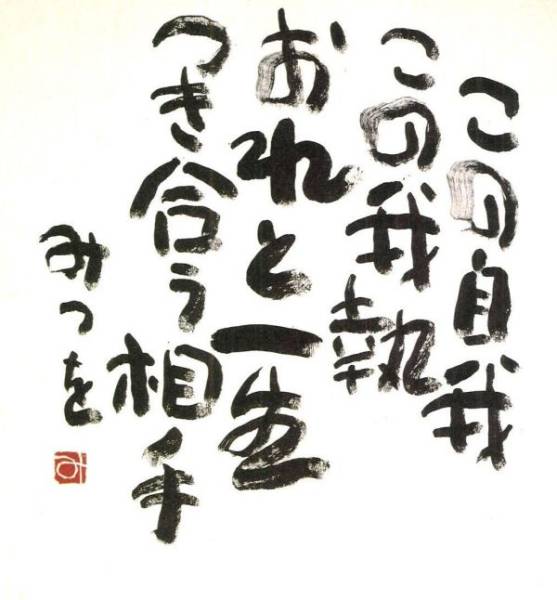 この自我
この我執
おれと一生
つき合う相手
みつを